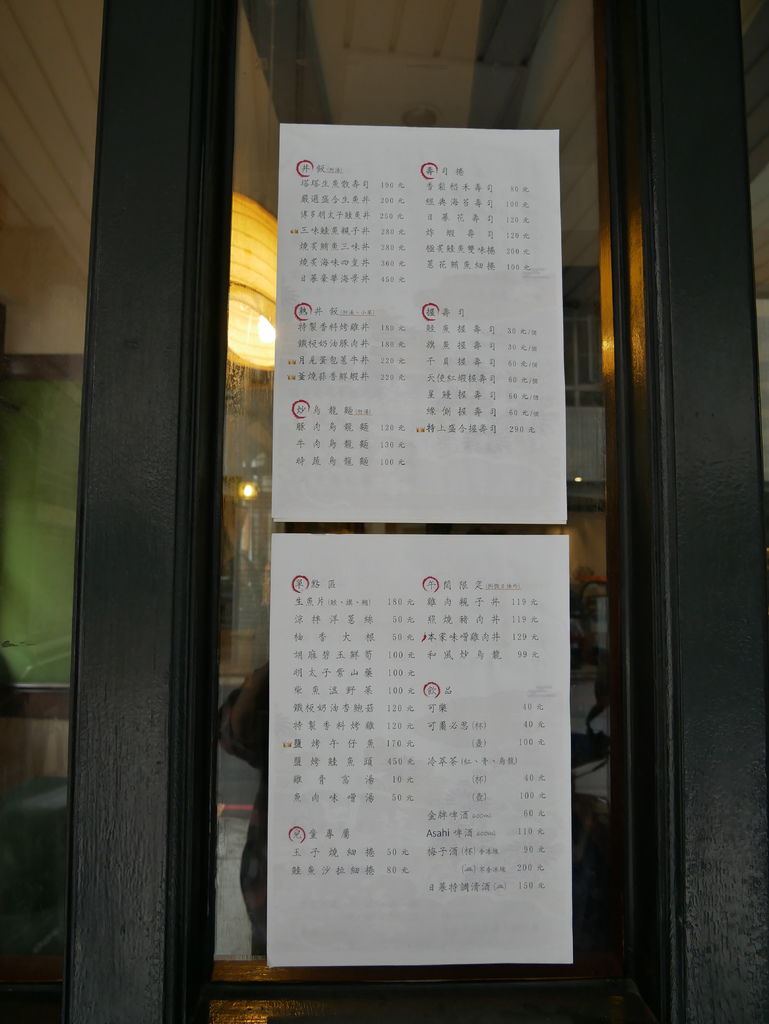 丼飯(附湯)
塔塔生魚散壽司 190元
嚴選盛合生魚丼 200元
博多明太子鮭魚丼 250元
三味鮭魚親子丼 280元
燒炙鮪魚三味丼 280元
燒炙海味四重丼 360元
日暮豪華海景丼 450元
熱丼飯(附湯、小菜)
特製香料烤雞丼 180元
鐵板奶油豚肉丼 180元
月見蛋包蔥牛丼 220元
釜燒蒜香鮮蝦丼 220元
炒烏龍麵(附湯)
豚肉烏龍麵 120元
牛肉烏龍麵 130元
時蔬烏龍麵 100元
壽司捲
香鬆稻禾壽司 80元
經典海苔壽司 100元
日暮花壽司 120元
炸蝦壽司 120元
極炙鮭魚雙味捲 200元
蔥花鮪魚細捲 100元
握壽司
鮭魚握壽司 30元/個
旗魚握壽司 30元/個
干貝握壽司 60元/個
天使紅蝦握壽司 60元/個
星鰻握壽司 60元/個
緣側握壽司 60元/個
特上盛合握壽司 290元
單點區
生魚片(鮭、旗、鮪) 180元
涼拌洋蔥絲 50元
柚香大根 50元
胡麻碧玉鮮筍 100元
明太子紫山藥 100元
柴魚溫野菜 100元
鐵板奶油杏鮑菇 120元
特製香料烤雞 120元
鹽烤午仔魚 170元
鹽烤鮭魚頭 450元
雞骨高湯 10元
魚肉味噌湯 50元
兒童專屬
玉子燒細捲 50元
鮭魚沙拉細捲 80元
午間限定
雞肉親子丼 119元
照燒豬肉丼 119元
本家味噌雞肉丼 129元
和風炒烏龍 99元
飲品
可樂 40元
可爾必思(杯) 40元
(壺) 100元
冷萃茶(紅、青、烏龍)
(杯) 40元
(壺) 100元
金牌啤酒 600ml 60元
Asahi 啤酒 600ml 110元
梅子酒(杯) 90元
200元
日暮特調清酒 150元